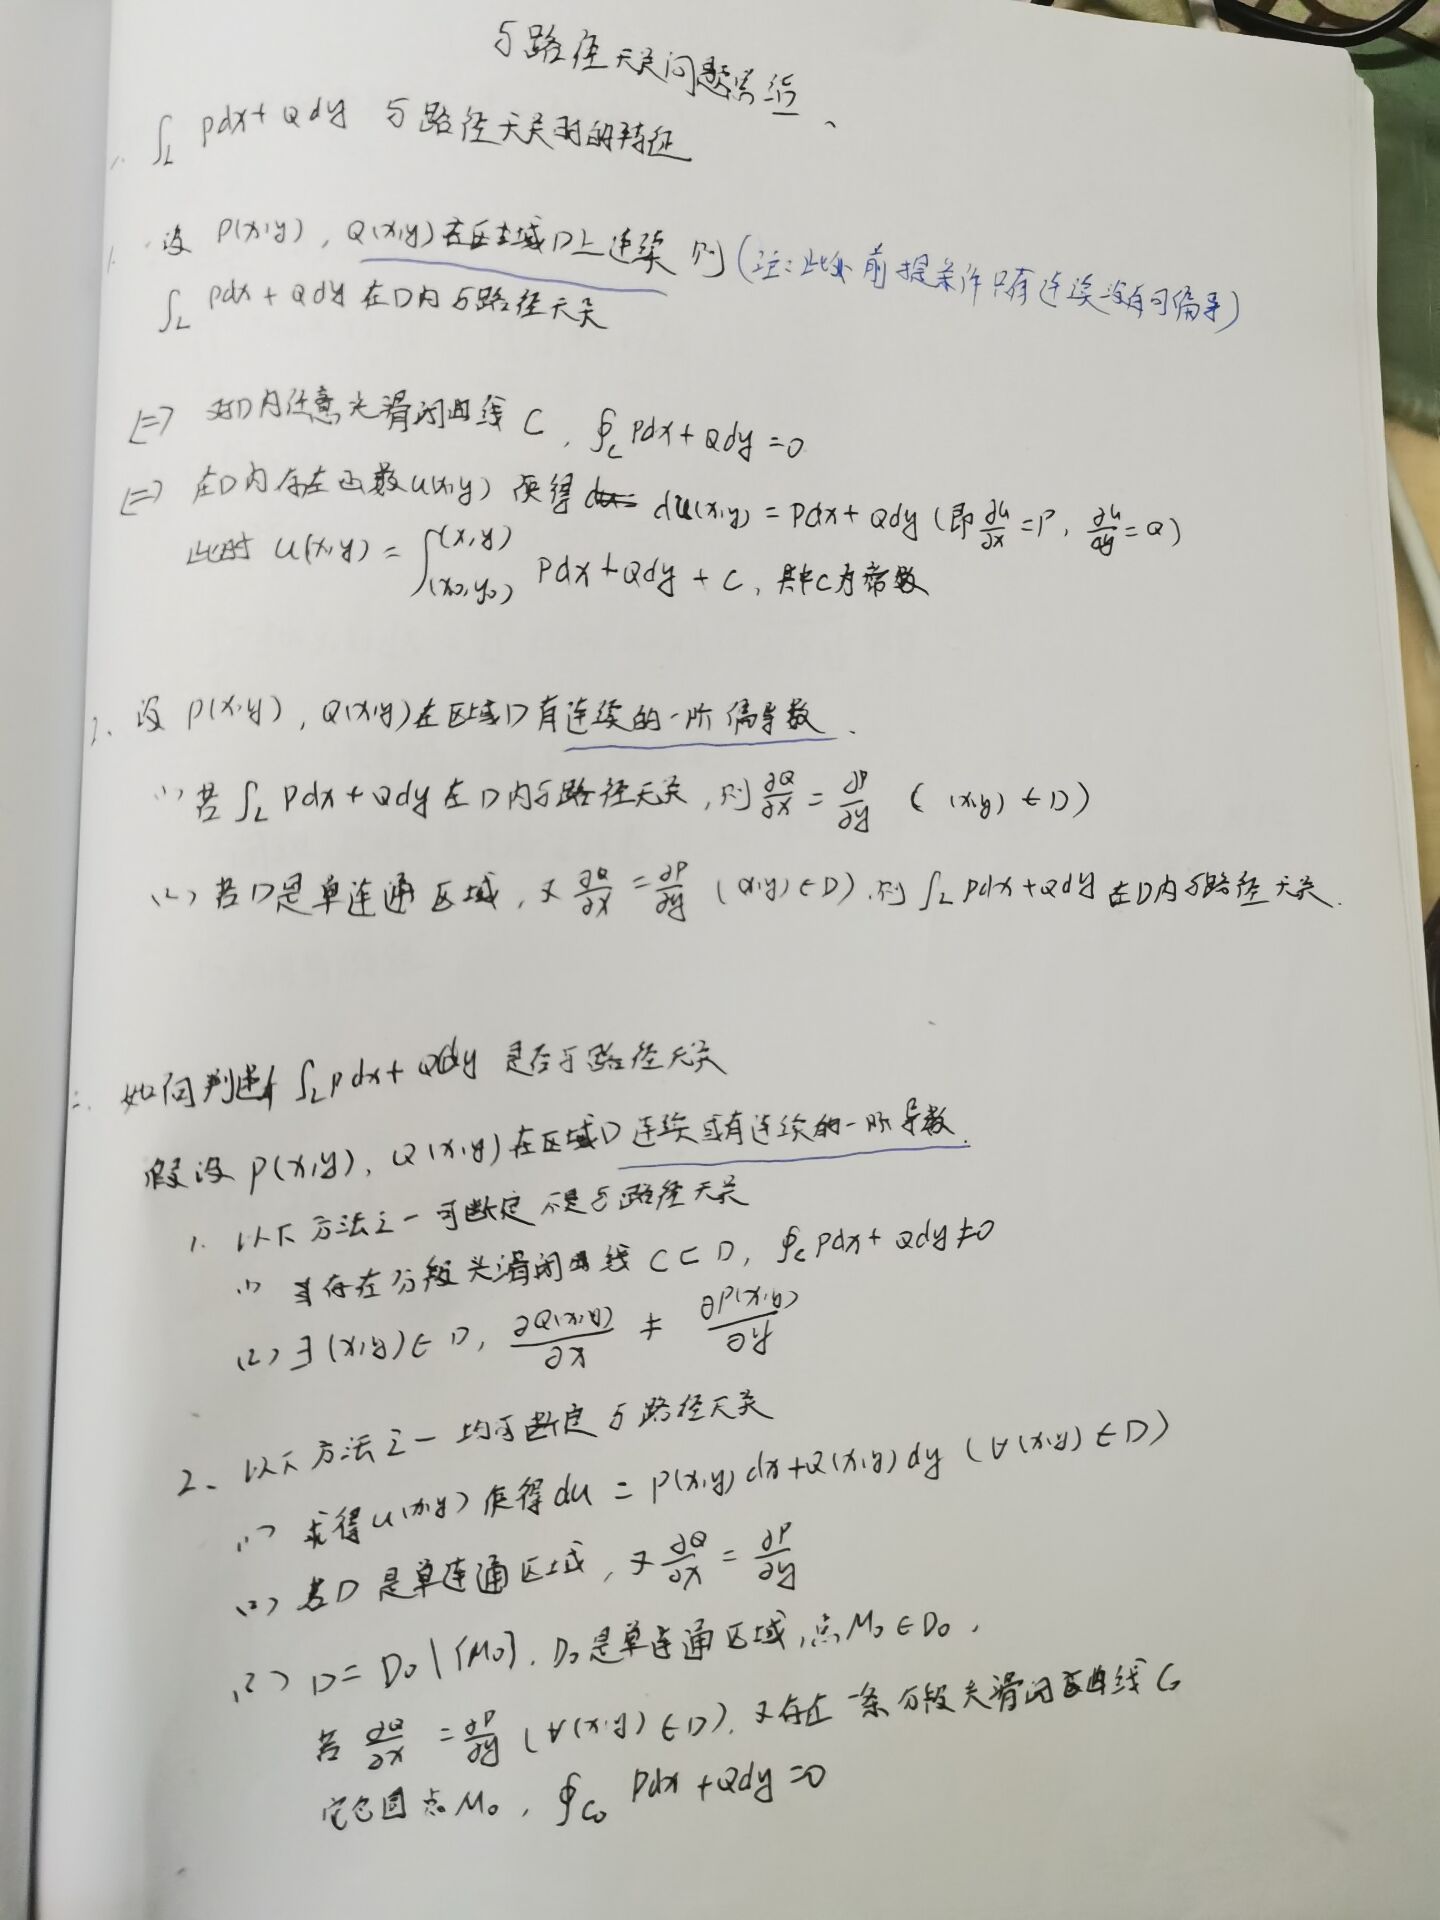 与路径无关问题总结
一. ∫_L Pdx+Qdy 与路径无关时的特征
1. 设 P(x,y), Q(x,y)在区域D上连续 则(注:此处前提条件只有连续没有可偏导)
∫_L Pdx+Qdy 在D内与路径无关
<=> 对D内任意光滑闭曲线 C, ∮_C Pdx+Qdy=0
<=> 在D内存在函数u(x,y) 使得 du(x,y)=Pdx+Qdy (即 ∂u/∂x=P, ∂u/∂y=Q)
此时 u(x,y)=∫_(x₀,y₀)^(x,y) Pdx+Qdy+C, 其中C为常数
2. 设 P(x,y), Q(x,y)在区域D有连续的一阶偏导数.
(1) 若 ∫_L Pdx+Qdy 在D内与路径无关, 则 ∂Q/∂x=∂P/∂y ((x,y)∈D)
(2) 若D是单连通区域, 又 ∂Q/∂x=∂P/∂y ((x,y)∈D), 则 ∫_L Pdx+Qdy 在D内与路径无关.
二. 如何判断 ∫_L Pdx+Qdy 是否与路径无关
假设 P(x,y), Q(x,y)在区域D 连续或有连续的一阶导数.
1. 以下方法之一可断定不是与路径无关
(1) 存在分段光滑闭曲线 C⊂D, ∮_C Pdx+Qdy≠0
(2) ∃(x,y)∈D, ∂Q(x,y)/∂x ≠ ∂P(x,y)/∂y
2. 以下方法之一均可断定与路径无关
(1) 求得u(x,y) 使得du=P(x,y)dx+Q(x,y)dy (∀(x,y)∈D)
(2) 若D是单连通区域, 又 ∂Q/∂x=∂P/∂y
(2) D=D₀\{M₀}, D₀是单连通区域, 点M₀∈D₀,
若 ∂Q/∂x=∂P/∂y (∀(x,y)∈D), 又存在一条分段光滑闭曲线C₀
它包围点M₀, ∮_C₀ Pdx+Qdy=0